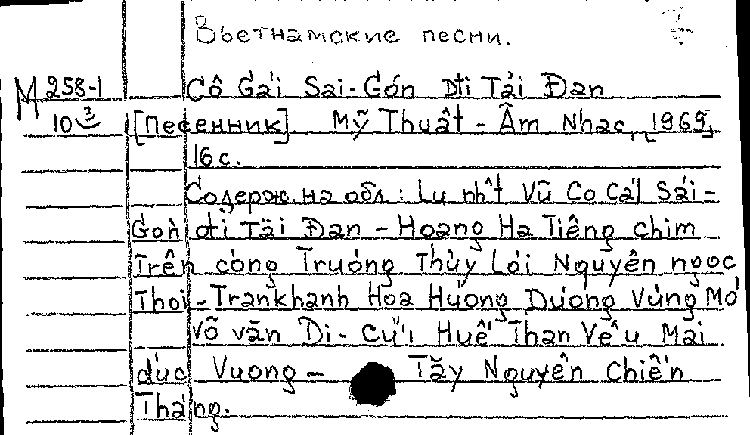 Вьетнамские песни.
М 258-1 Cô Gái Sai-Gón Đi Tải Đan
10 3 [Песенник]. Mỹ Thuât - Âm Nhac, 1969,
16 с.
Содерж. на обл.: Lu nhất Vũ Co Cál Sái-
Gon đi Tãi Đan - Hoang Ha Tiêng chim
Trên còng Trưóng Thùy Lói Nguyên ngoc
Thoi - Trankhanh Hoa Húóng Dúóng Vúng Mỏ
Võ văn Di - Cứu Huế Than Yêu Mai
đúc Vuong - Tăy Nguyên Chiến
Tháng.